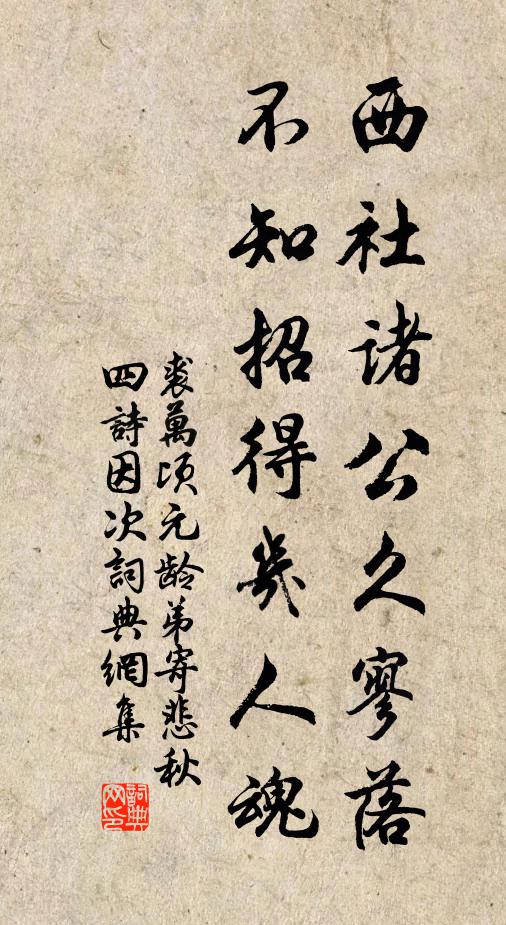 西社諸公久寥落
不知招得幾人魂
裘萬頃元龄弟寄悲秋
四詩因次詞典網集
詞典
网印